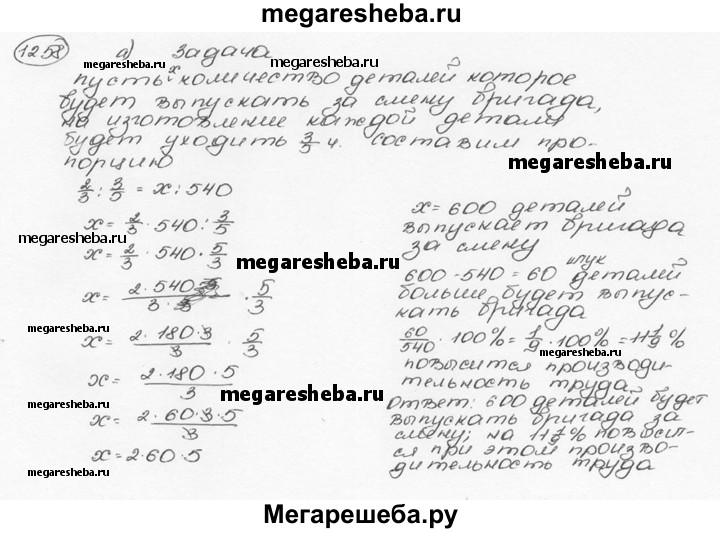 megaresheba.ru
1258 а) Задача
megaresheba.ru
пусть x количество деталей которое
будет выпускать за смену бригада,
megaresheba.ru
на изготовление каждой детали
будет уходить 3/5 ч. составим про-
порцию
megaresheba.ru
2/3 : 3/5 = x : 540
x = 2/3 · 540 : 3/5
megaresheba.ru
x = 2/3 · 540 · 5/3
megaresheba.ru
x = · 5/3
megaresheba.ru
x = 2·180·3/3 · 5/3
x = 2·180·5/3
megaresheba.ru
megaresheba.ru
x = 2·60·3·5/3
megaresheba.ru
x = 2·60·5
megaresheba.ru
x = 600 деталей
выпускает бригада
megaresheba.ru
за смену
штук
600 - 540 = 60 деталей
больше будет выпус-
кать бригада
60/540 · 100% = 1/9 · 100% = 11 1/9 %
megaresheba.ru
повысится производи-
тельность труда
Ответ: 600 деталей будет
выпускать бригада за
смену; на 11 1/9 % повысит-
ся при этом произво-
дительность труда
Мегарешеба.ру